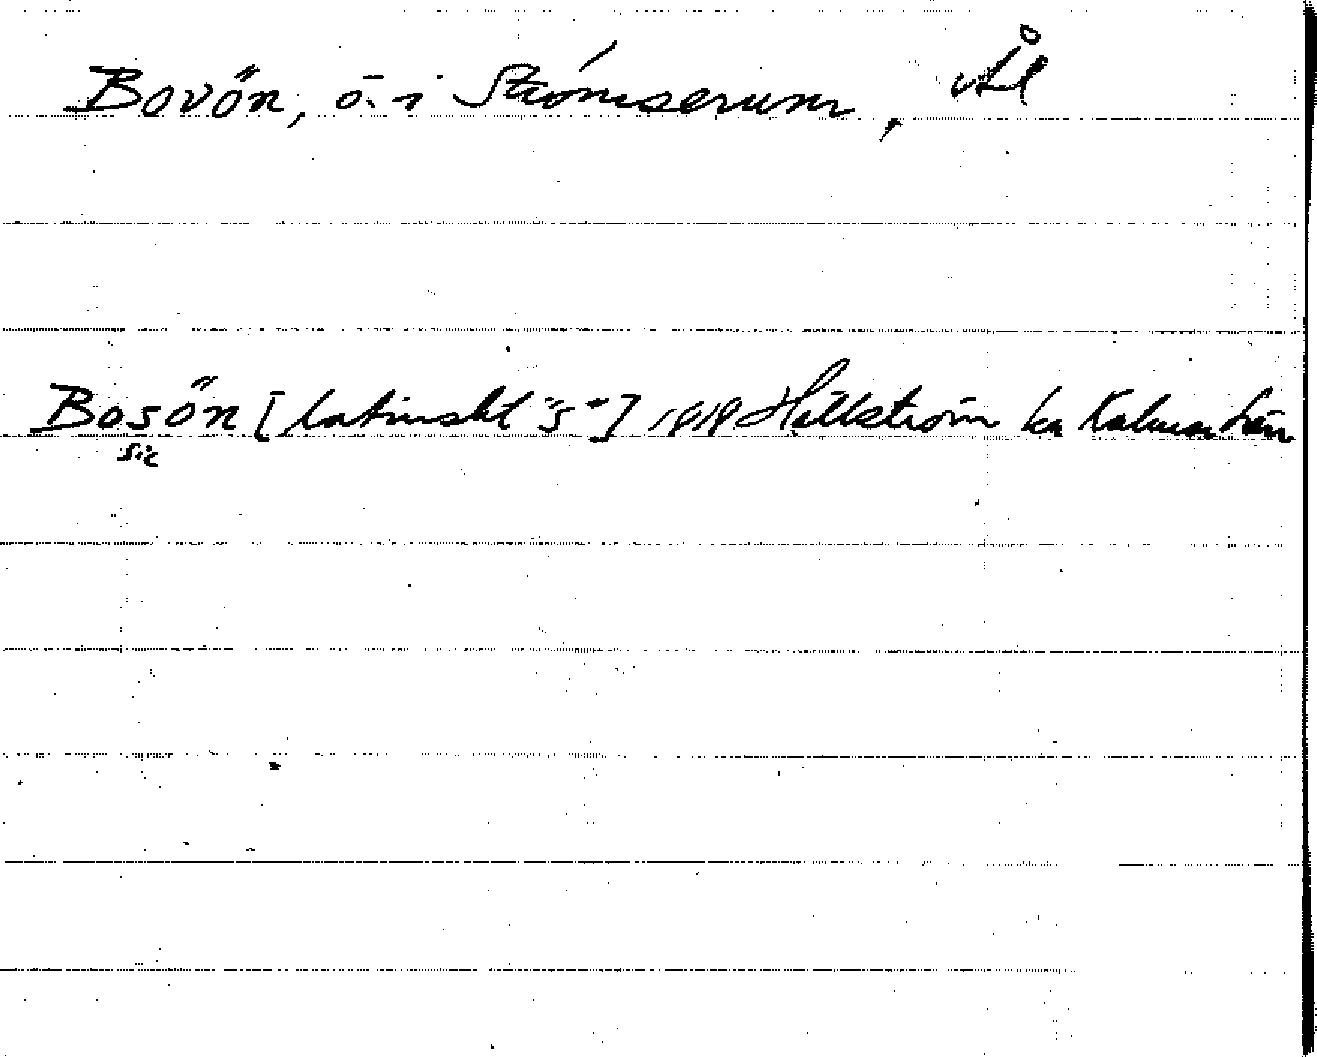 Bovön, ö. i Strömserum, Ål
Bosön [latinskt "s"] 1818 Hällström ka Kalmar län
sic